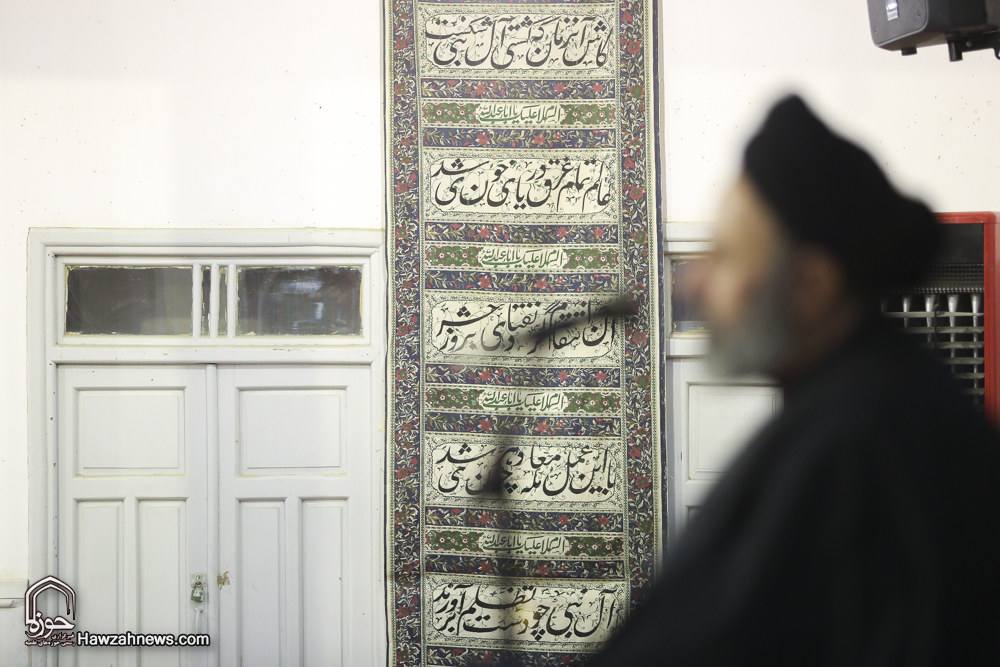 کاش آن زمان که کشتی آل نبی شکست
السلام علیک یا اباعبدالله
عالم تمام غرق دریای خون شدی
السلام علیک یا اباعبدالله
آن انتقام گر نفتادی بروز حشر
السلام علیک یا اباعبدالله
با این عمل معامله دهر چون شدی
السلام علیک یا اباعبدالله
آل نبی چو دست تظلم برآورند
حوزه
Hawzahnews.com